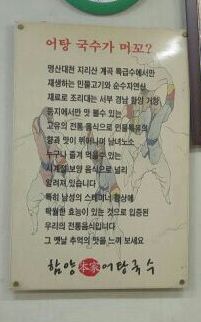 어탕 국수가 머꼬?
명산대천 지리산 계곡 특급수에서만
재생하는 민물고기와 순수자연산
재료로 조리대는 서부 경남 함양 거창
등지에서만 맛 볼수 있는
고유의 전통 음식으로 민물특유의
향과 맛이 뛰어나며 남녀노소
누구나 즐겨 먹을수 있는
사계절 보양 음식으로 널리
알려져 있습니다
특히 남성의 스테미너 향상에
탁월한 효능이 있는 것으로 입증된
우리의 전통음식입니다
그 옛날 추억의 맛을 느껴 보세요
함양 本家 어탕국수